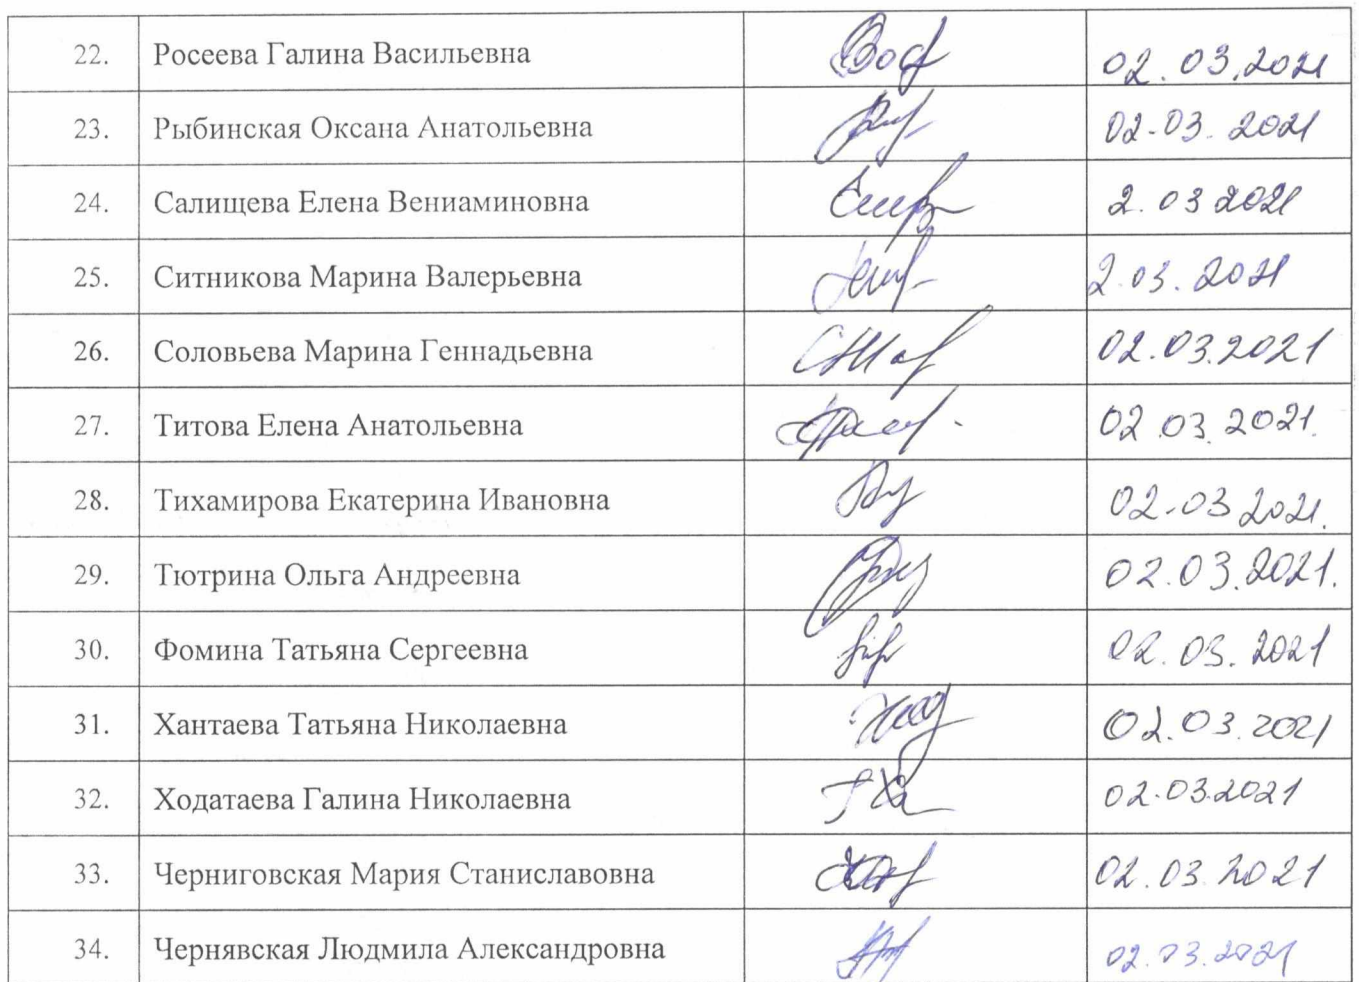 22. Росеева Галина Васильевна 02.03.2021
23. Рыбинская Оксана Анатольевна 02.03. 2021
24. Салищева Елена Вениаминовна 2.03 2021
25. Ситникова Марина Валерьевна 2.03. 2021
26. Соловьева Марина Геннадьевна 02.03.2021
27. Титова Елена Анатольевна 02.03.2021.
28. Тихамирова Екатерина Ивановна 02.03 2021.
29. Тютрина Ольга Андреевна 02.03.2021.
30. Фомина Татьяна Сергеевна 02.03.2021
31. Хантаева Татьяна Николаевна 02.03.2021
32. Ходатаева Галина Николаевна 02.03.2021
33. Черниговская Мария Станиславовна 02.03.2021
34. Чернявская Людмила Александровна 02.03.2021